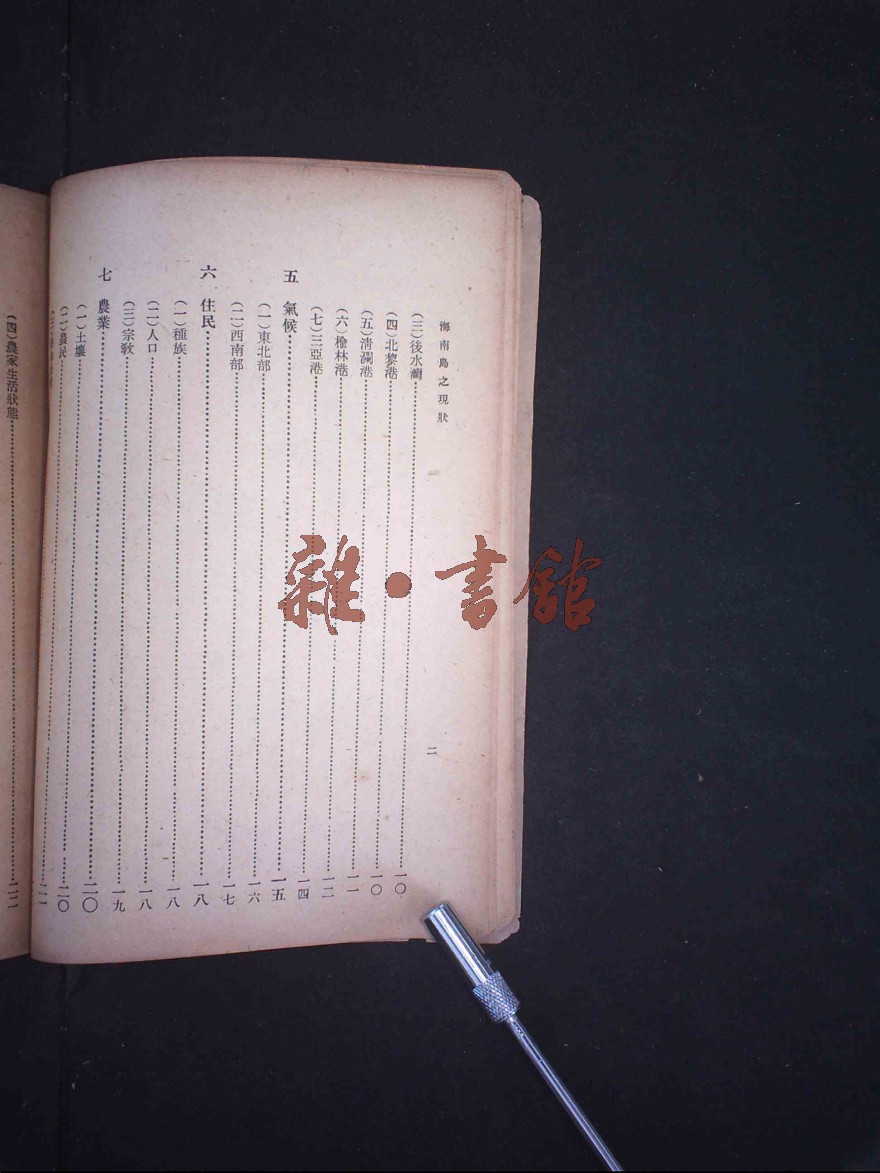 海南島之現狀
二
(三)後水灣……一〇
(四)北黎港……一〇
(五)清瀾港……一一
(六)榆林港……一二
(七)三亞港……一四
五 氣候……一五
(一)東北部……一六
(二)西南部……一七
六 住民……一八
(一)種族……一八
(二)人口……一八
(三)宗教……一九
七 農業……二〇
(一)土壤……二〇
(二)農民……二〇
(四)農家生活狀態
雜·書館